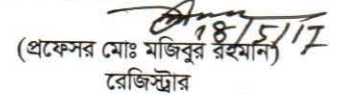 18/5/17
(প্রফেসর মোঃ মজিবুর রহমান)
রেজিস্ট্রার